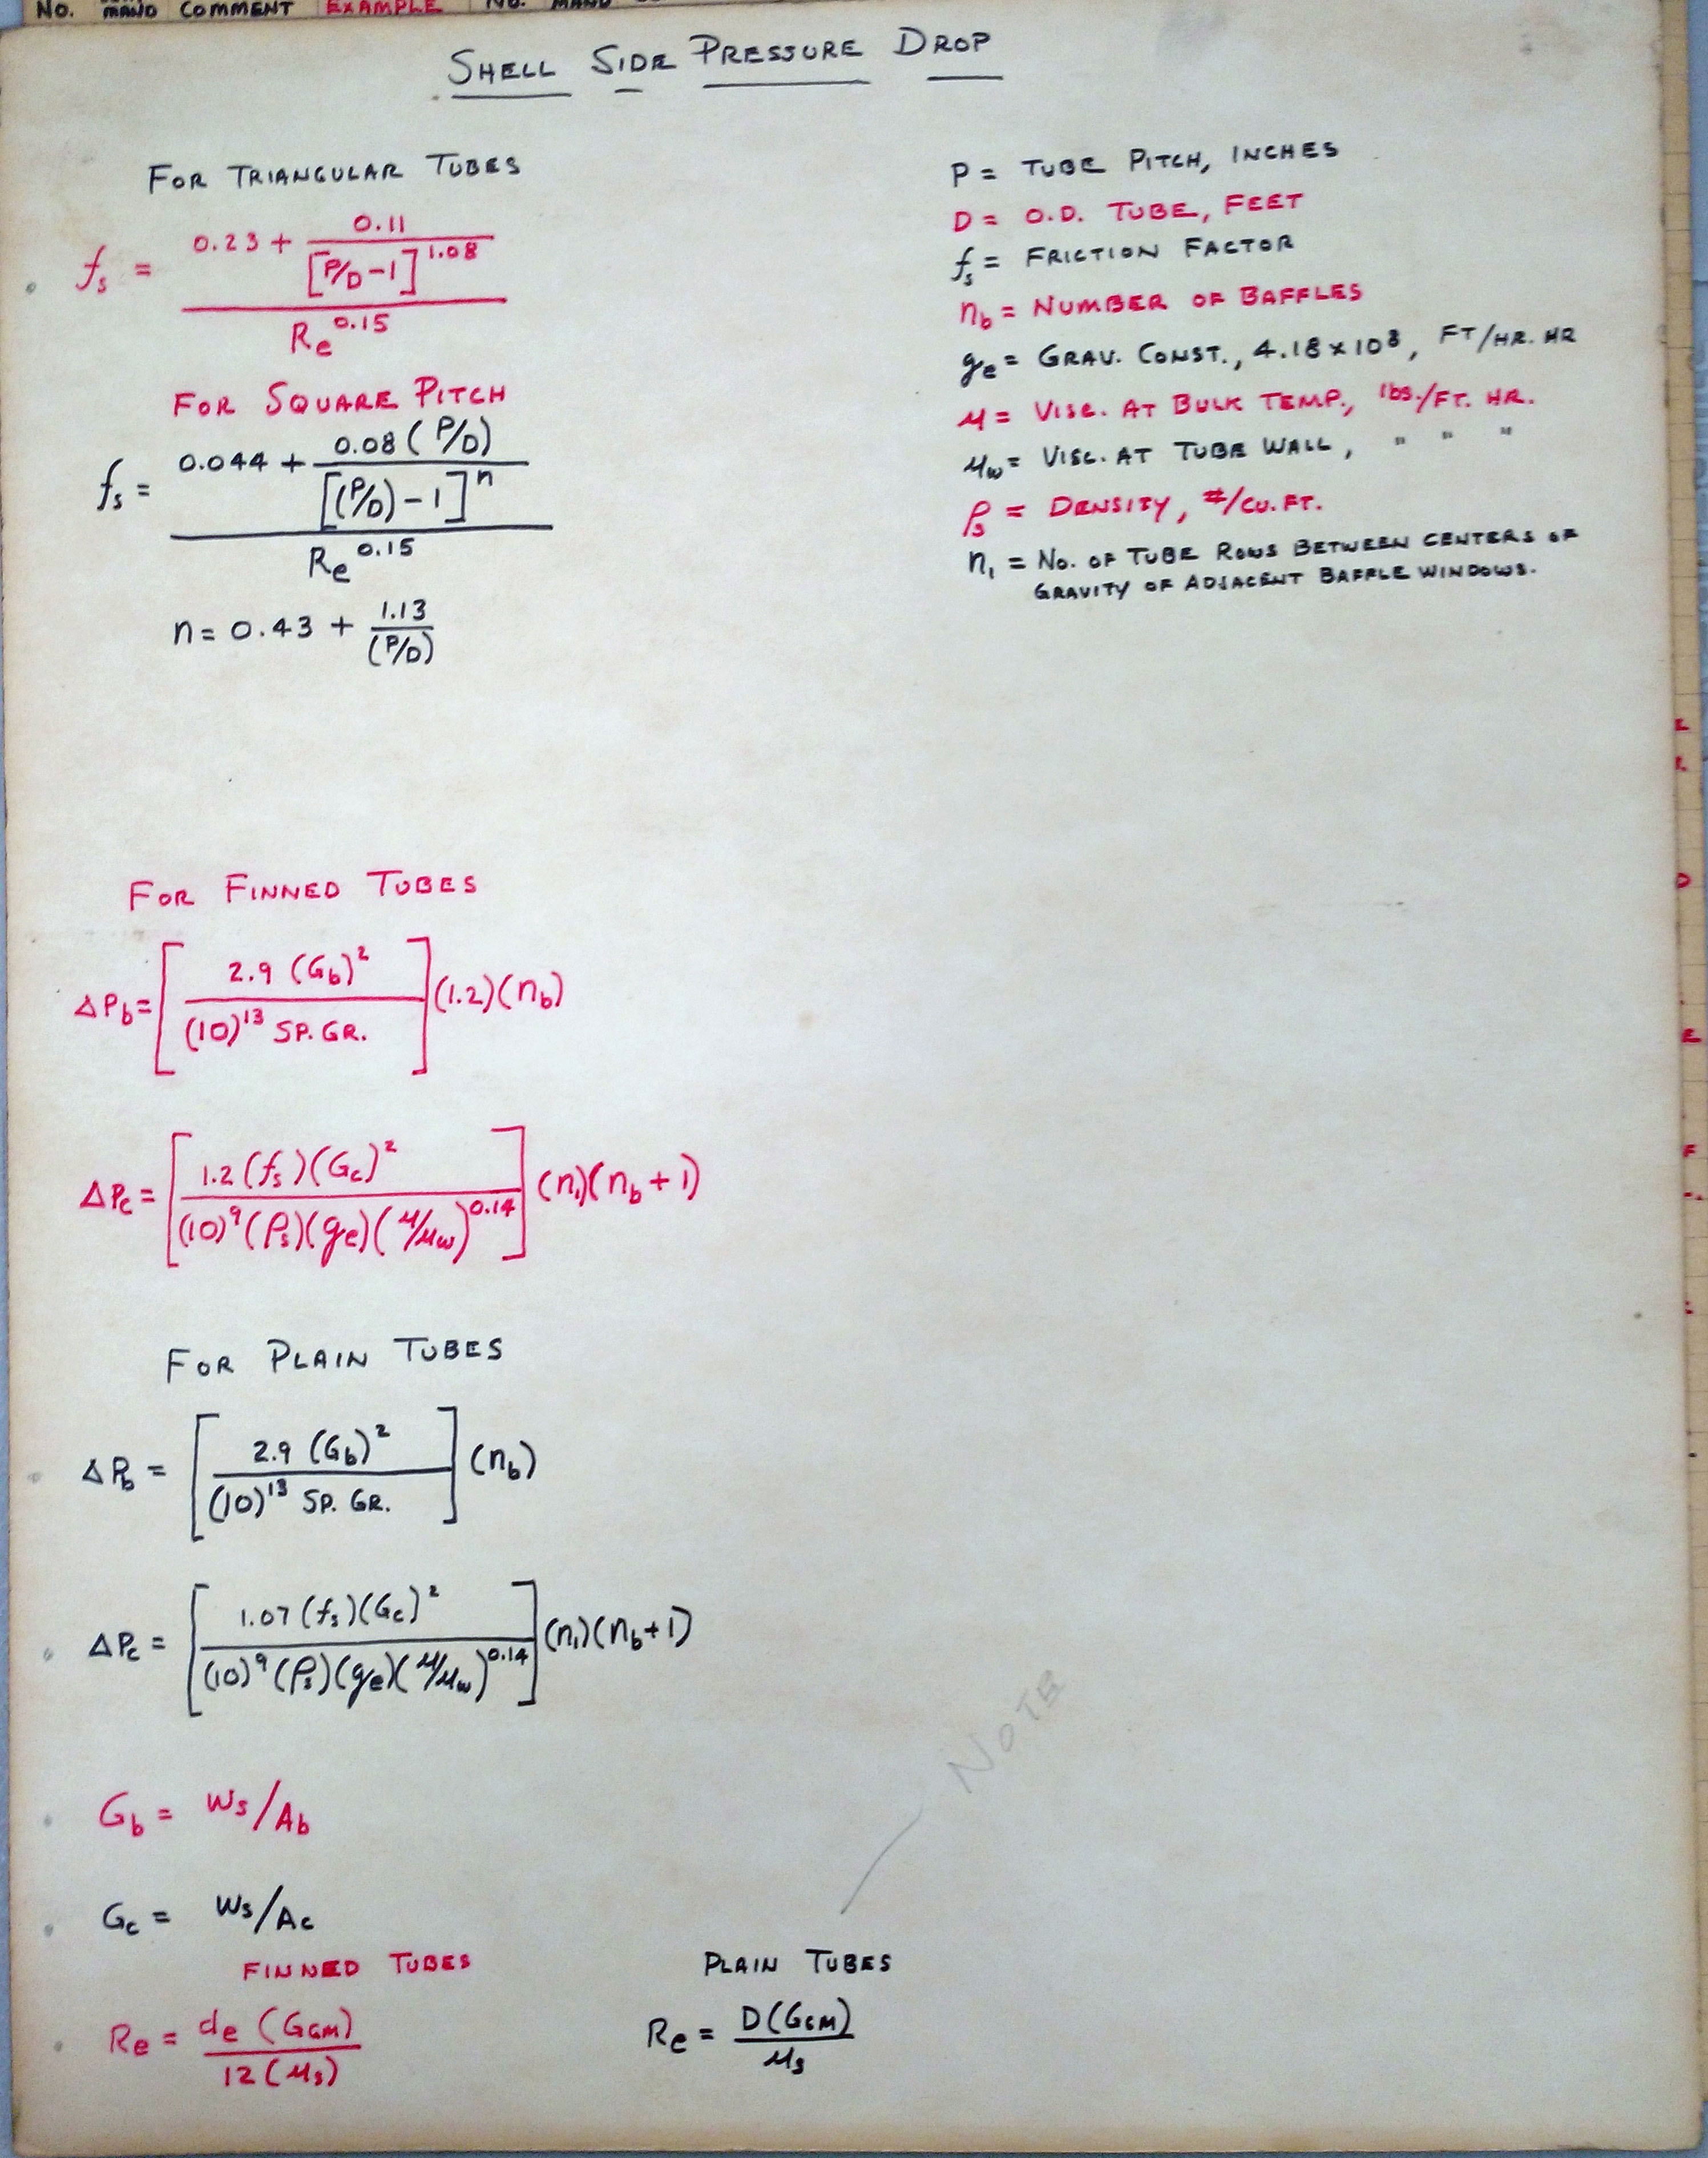 No. MAND COMMENT EXAMPLE No. MAND
SHELL SIDE PRESSURE DROP
FOR TRIANGULAR TUBES
fs = (0.23 + 0.11 / [P/D - 1]^1.08) / Re^0.15
FOR SQUARE PITCH
fs = (0.044 + 0.08 (P/D) / [(P/D) - 1]^n) / Re^0.15
n = 0.43 + 1.13 / (P/D)
P = TUBE PITCH, INCHES
D = O.D. TUBE, FEET
fs = FRICTION FACTOR
nb = NUMBER OF BAFFLES
ge = GRAV. CONST., 4.18 x 10^8, FT/HR. HR
μ = VISC. AT BULK TEMP., lbs./FT. HR.
μw = VISC. AT TUBE WALL, " " "
ρs = DENSITY, #/CU.FT.
n1 = NO. OF TUBE ROWS BETWEEN CENTERS OF
GRAVITY OF ADJACENT BAFFLE WINDOWS.
FOR FINNED TUBES
ΔPb = [2.9 (Gb)^2 / (10)^13 SP. GR.] (1.2)(nb)
ΔPc = [1.2 (fs)(Gc)^2 / (10)^9 (ρs)(ge)(μ/μw)^0.14] (n1)(nb + 1)
FOR PLAIN TUBES
ΔPb = [2.9 (Gb)^2 / (10)^13 SP. GR.] (nb)
ΔPc = [1.07 (fs)(Gc)^2 / (10)^9 (ρs)(ge)(μ/μw)^0.14] (n1)(nb + 1)
NOTE
Gb = Ws/Ab
Gc = Ws/Ac
FINNED TUBES
Re = de (GGM) / 12 (μs)
PLAIN TUBES
Re = D (GGM) / μs